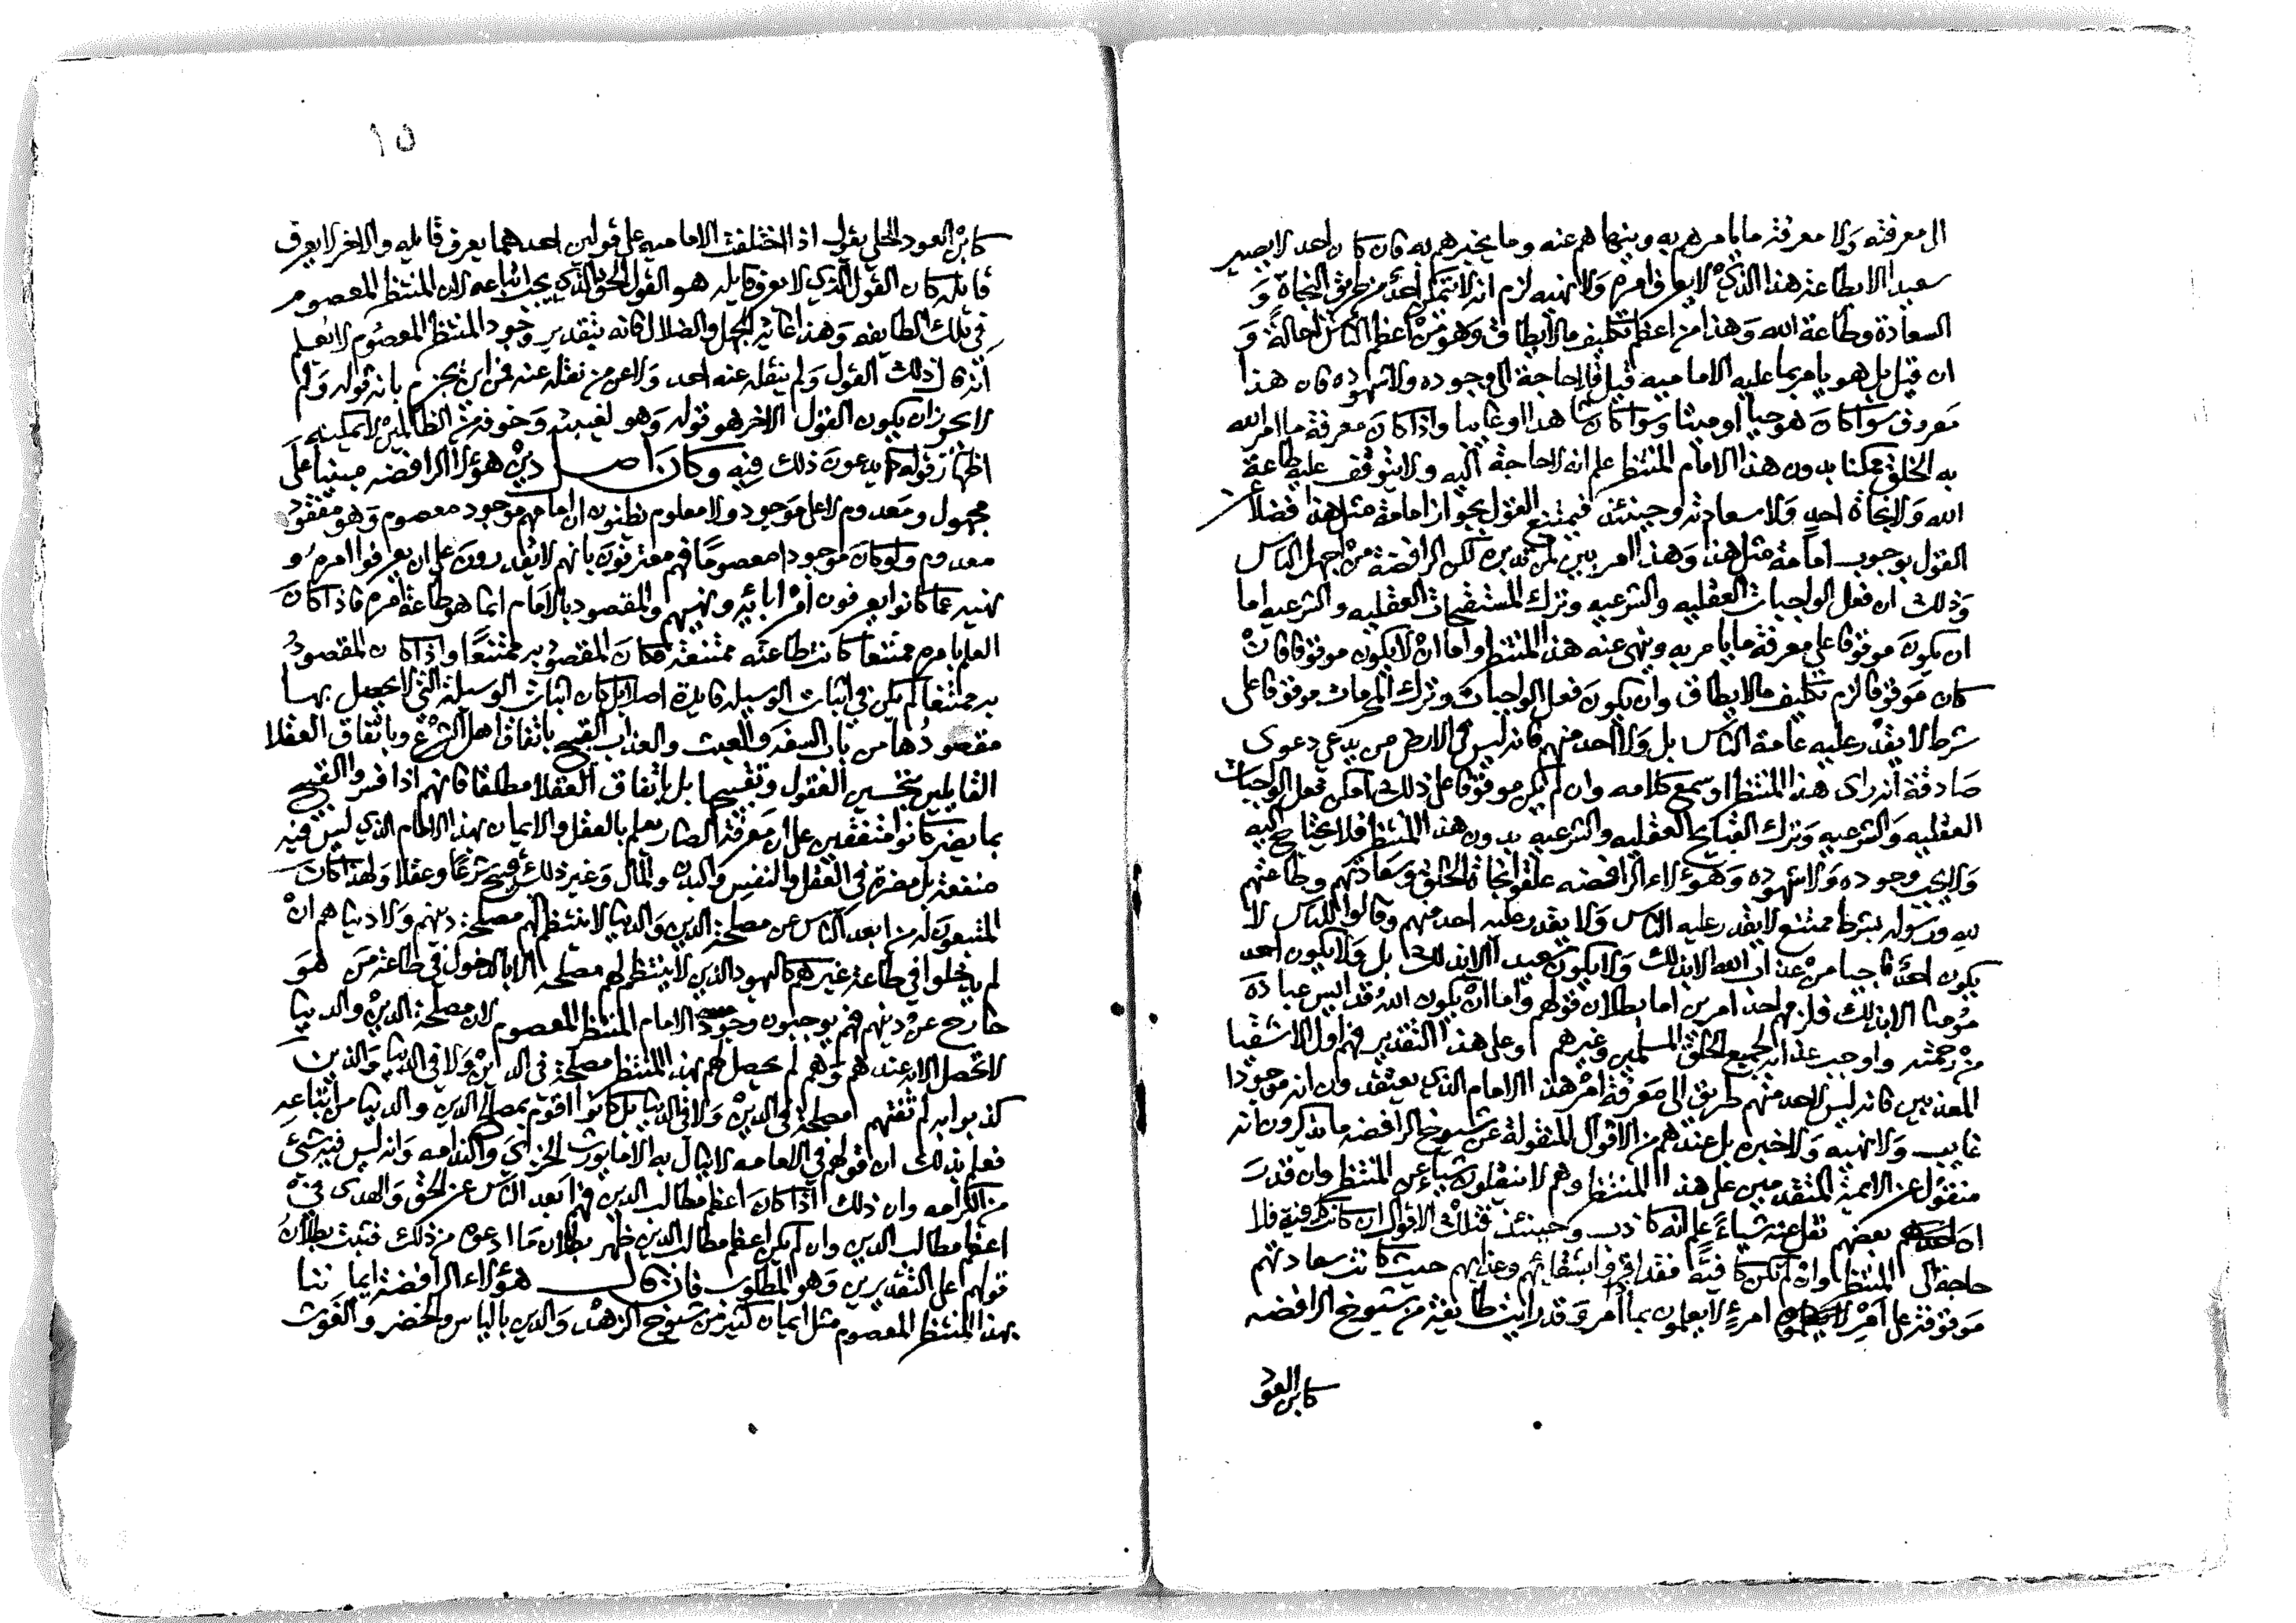 الى معرفته ولا معرفة ما يامرهم به وينهاهم عنه وما يخبرهم به فان كان احد لا يصير
سعيدا الا بطاعة هذا الذي لا يعرف امره ولا نهيه لزم انه لا يتمكن احد من طريق النجاة و
السعادة وطاعة الله وهذا من اعظم تكليف ما لا يطاق وهو من اعظم الناس احالة و
ان قيل بل هو يامر بما عليه الاماميه قيل فلا حاجة الى وجوده ولا شهوده فان هذا
معروف سوا كان هو حيا او ميتا وسوا كان شاهدا او غايبا واذا كان معرفة ما امر الله
به الخلق ممكنا بدون هذا الامام المنتظر علم انه لا حاجة اليه ولا يتوقف عليه طاعة
الله ولا نجاة احد ولا سعادته وحينئذ فيمتنع القول بجواز امامة مثل هذا فضلا عن
القول بوجوب امامة مثل هذا وهذا امر بين لمن تدبره لكن الرافضة من اجهل الناس
وذلك ان فعل الواجبات العقليه والشرعيه وترك المستقبحات العقليه والشرعيه اما
ان يكون موقوفا على معرفة ما يامر به وينهى عنه هذا المنتظر واما ان لا يكون موقوفا فان
كان موقوفا لزم تكليف ما لا يطاق وان يكون فعل الواجبات وترك المحرمات موقوفا على
شرط لا يقدر عليه عامة الناس بل ولا احد منهم فانه ليس في الارض من يدعي دعوى
صادقة انه راى هذا المنتظر او سمع كلامه وان لم يكن موقوفا على ذلك امكن فعل الواجبات
العقليه والشرعيه وترك القبايح العقليه والشرعيه بدون هذا المنتظر فلا يحتاج اليه
ولا يجب وجوده ولا شهوده وهؤلاء الرافضه علقوا نجاة الخلق وسعادتهم وطاعتهم
لله ورسوله بشرط ممتنع لا يقدر عليه الناس ولا يقدر عليه احد منهم وقالوا للناس لا
يكون احد ناجيا من عذاب الله الا بذلك ولا يكون سعيدا الا بذلك بل ولا يكون احد
مؤمنا الا بذلك فلزمهم احد امرين اما بطلان قولهم واما ان يكون الله قد ايس عباده
من رحمته واوجب عذابه لجميع الخلق المسلمين وغيرهم وعلى هذا التقدير فهم اول الاشقيا
المعذبين فانه ليس لاحد منهم طريق الى معرفة امر هذا الامام الذي يعتقدون انه موجودا
غايب ولا نهيه ولا خبره بل عندهم من الاقوال المنقولة عن شيوخ الرافضه ما يذكرون انه
منقول عن الايمة المتقدمين على هذا المنتظر وهم لا ينقلون شياء عن المنتظر وان قدر
ان بعضهم نقل عنه شياء علم انه كاذب وحينئذ فتلك الاقوال ان كانت كافية فلا
حاجة الى المنتظر وان لم تكن كافية فقد اقروا بشقائهم وعذابهم حيث كانت سعادتهم
موقوفة على امر لا يعلمون بما امر وقد رايت طايفة من شيوخ الرافضه
كابن العود
١٥
كابن العود الحلي يقول اذا اختلفت الاماميه على قولين احدهما يعرف قايله والاخر لا يعرف
قايله كان القول الذي لا يعرف قايله هو القول الحق الذي يجب اتباعه لان المنتظر المعصوم
في تلك الطايفه وهذا غاية الجهل والضلال فانه بتقدير وجود المنتظر المعصوم لا يعلم
انه قال ذلك القول ولم ينقله عنه احد ولا عن من نقله عنه فمن اين يجزم بانه قوله ولم
لا يجوز ان يكون القول الاخر هو قوله وهو لغيبته وخوفه من الظالمين لا يمكنه
اظهار قوله كما يدعون ذلك فيه وكان اصل دين هؤلاء الرافضه مبنيا على
مجهول ومعدوم لا على موجود ولا معلوم يظنون ان امامهم موجود معصوم وهو مفقود
معدوم ولو كان موجودا معصوما فهم معترفون بانهم لا يقدرون على ان يعرفوا امره و
نهيه كما كانوا يعرفون امر ابائه ونهيهم والمقصود بالامام انما هو طاعة امره فاذا كان
العلم بامره ممتنعا كانت طاعته ممتنعة فكان المقصود به ممتنعا واذا كان المقصود
به ممتنعا لم يكن في اثبات الوسيله فايدة اصلا بل كان اثبات الوسيلة التي لا يحصل بها
مقصودها من باب السفه والعبث والعذاب القبيح باتفاق اهل الشرع وباتفاق العقلا
القايلين بتحسين العقول وتقبيحها بل باتفاق العقلا مطلقا فانهم اذا فسروا القبيح
بما يضر كانوا متفقين على ان معرفة الضار يعلم بالعقل والايمان بهذا الامام الذي ليس فيه
منفعة بل مضرة في العقل والنفس والبدن والمال وغير ذلك قبيح شرعا وعقلا ولهذا كان
المتبعون له من ابعد الناس عن مصلحة الدين والدنيا لا تنتظم لهم مصلحة دينهم ولا دنياهم ان
لم يدخلوا في طاعة غيرهم كاليهود الذين لا ينتظم لهم مصلحة الا بالدخول في طاعة من هو
خارج عن دينهم فهم يوجبون وجود الامام المنتظر المعصوم لان مصلحة الدين والدنيا
لا تحصل الا به عندهم وهم لم يحصل لهم بهذا المنتظر مصلحة في الدين ولا في الدنيا والذين
كذبوا به لم تفتهم مصلحة في الدين ولا في الدنيا بل كانوا اقوم بمصالح الدين والدنيا من اتباعه
فعلم بذلك ان قولهم في الامامه لا ينال به الا ما يورث الخزي والندامه وانه ليس فيه شيئ
من الكرامه وان ذلك اذا كان اعظم مطالب الدين فهم ابعد الناس عن الحق والهدى في
اعظم مطالب الدين وان لم يكن اعظم مطالب الدين ظهر بطلان ما ادعوه من ذلك فثبت بطلان
قولهم على التقديرين وهو المطلوب فان قال هؤلاء الرافضة ايماننا
بهذا المنتظر المعصوم مثل ايمان كثير من شيوخ الزهد والدين بالياس والخضر والغوث